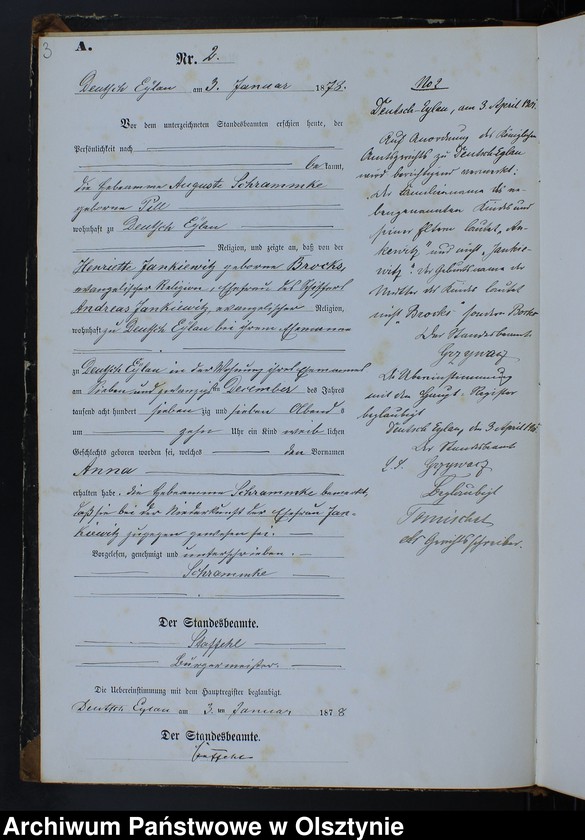 3
A.
Nr. 2.
Deutsch Eylau am 3. Januar 1878.
Vor dem unterzeichneten Standesbeamten erschien heute, der
Persönlichkeit nach
bekannt,
die Hebeamme Auguste Schrammke
geborne Pill
wohnhaft zu Deutsch Eylau
Religion, und zeigte an, daß von der
Henriette Jankiewitz geborne Brocks,
evangelischer Religion, Ehefrau des
Andreas Jankiewitz, evangelischer Religion,
wohnhaft zu Deutsch Eylau bei ihrem Ehemanne
zu Deutsch Eylau in der Wohnung ihres Ehemannes
am sieben und zwanzigsten December des Jahres
tausend acht hundert siebenzig und sieben Abends
um zehn Uhr ein Kind weiblichen
Geschlechts geboren worden sei, welches den Vornamen
Anna
erhalten habe. Die Hebeamme Schrammke bemerkt,
daß sie bei der Niederkunft der Ehefrau Jan-
kiewitz zugegen gewesen sei.
Vorgelesen, genehmigt und unterschrieben.
Schrammke
Der Standesbeamte.
Staffehl
Bürgermeister.
Die Uebereinstimmung mit dem Hauptregister beglaubigt.
Deutsch Eylau am 3. ten Januar 1878
Der Standesbeamte.
Staffehl
No 2
Deutsch-Eylau, am 3 April
Auf Anordnung des Königlichen
Amtsgerichts zu Deutsch Eylau
wird berichtigend vermerkt:
"Der Familienname des ne-
bengenannten Kindes und
seiner Eltern lautet "An-
kewitz" und nicht "Jankie-
witz". Der Geburtsname der
Mutter des Kindes lautet
nicht "Brocks" sondern
Der Standesbeamte
Grzywacz
Die Uebereinstimmung
mit dem Haupt-Register
beglaubigt
Deutsch Eylau, den 3 April
Der Standesbeamte
L.S. Grzywacz
Beglaubigt
als Gerichtsschreiber.
Archiwum Państwowe w Olsztynie